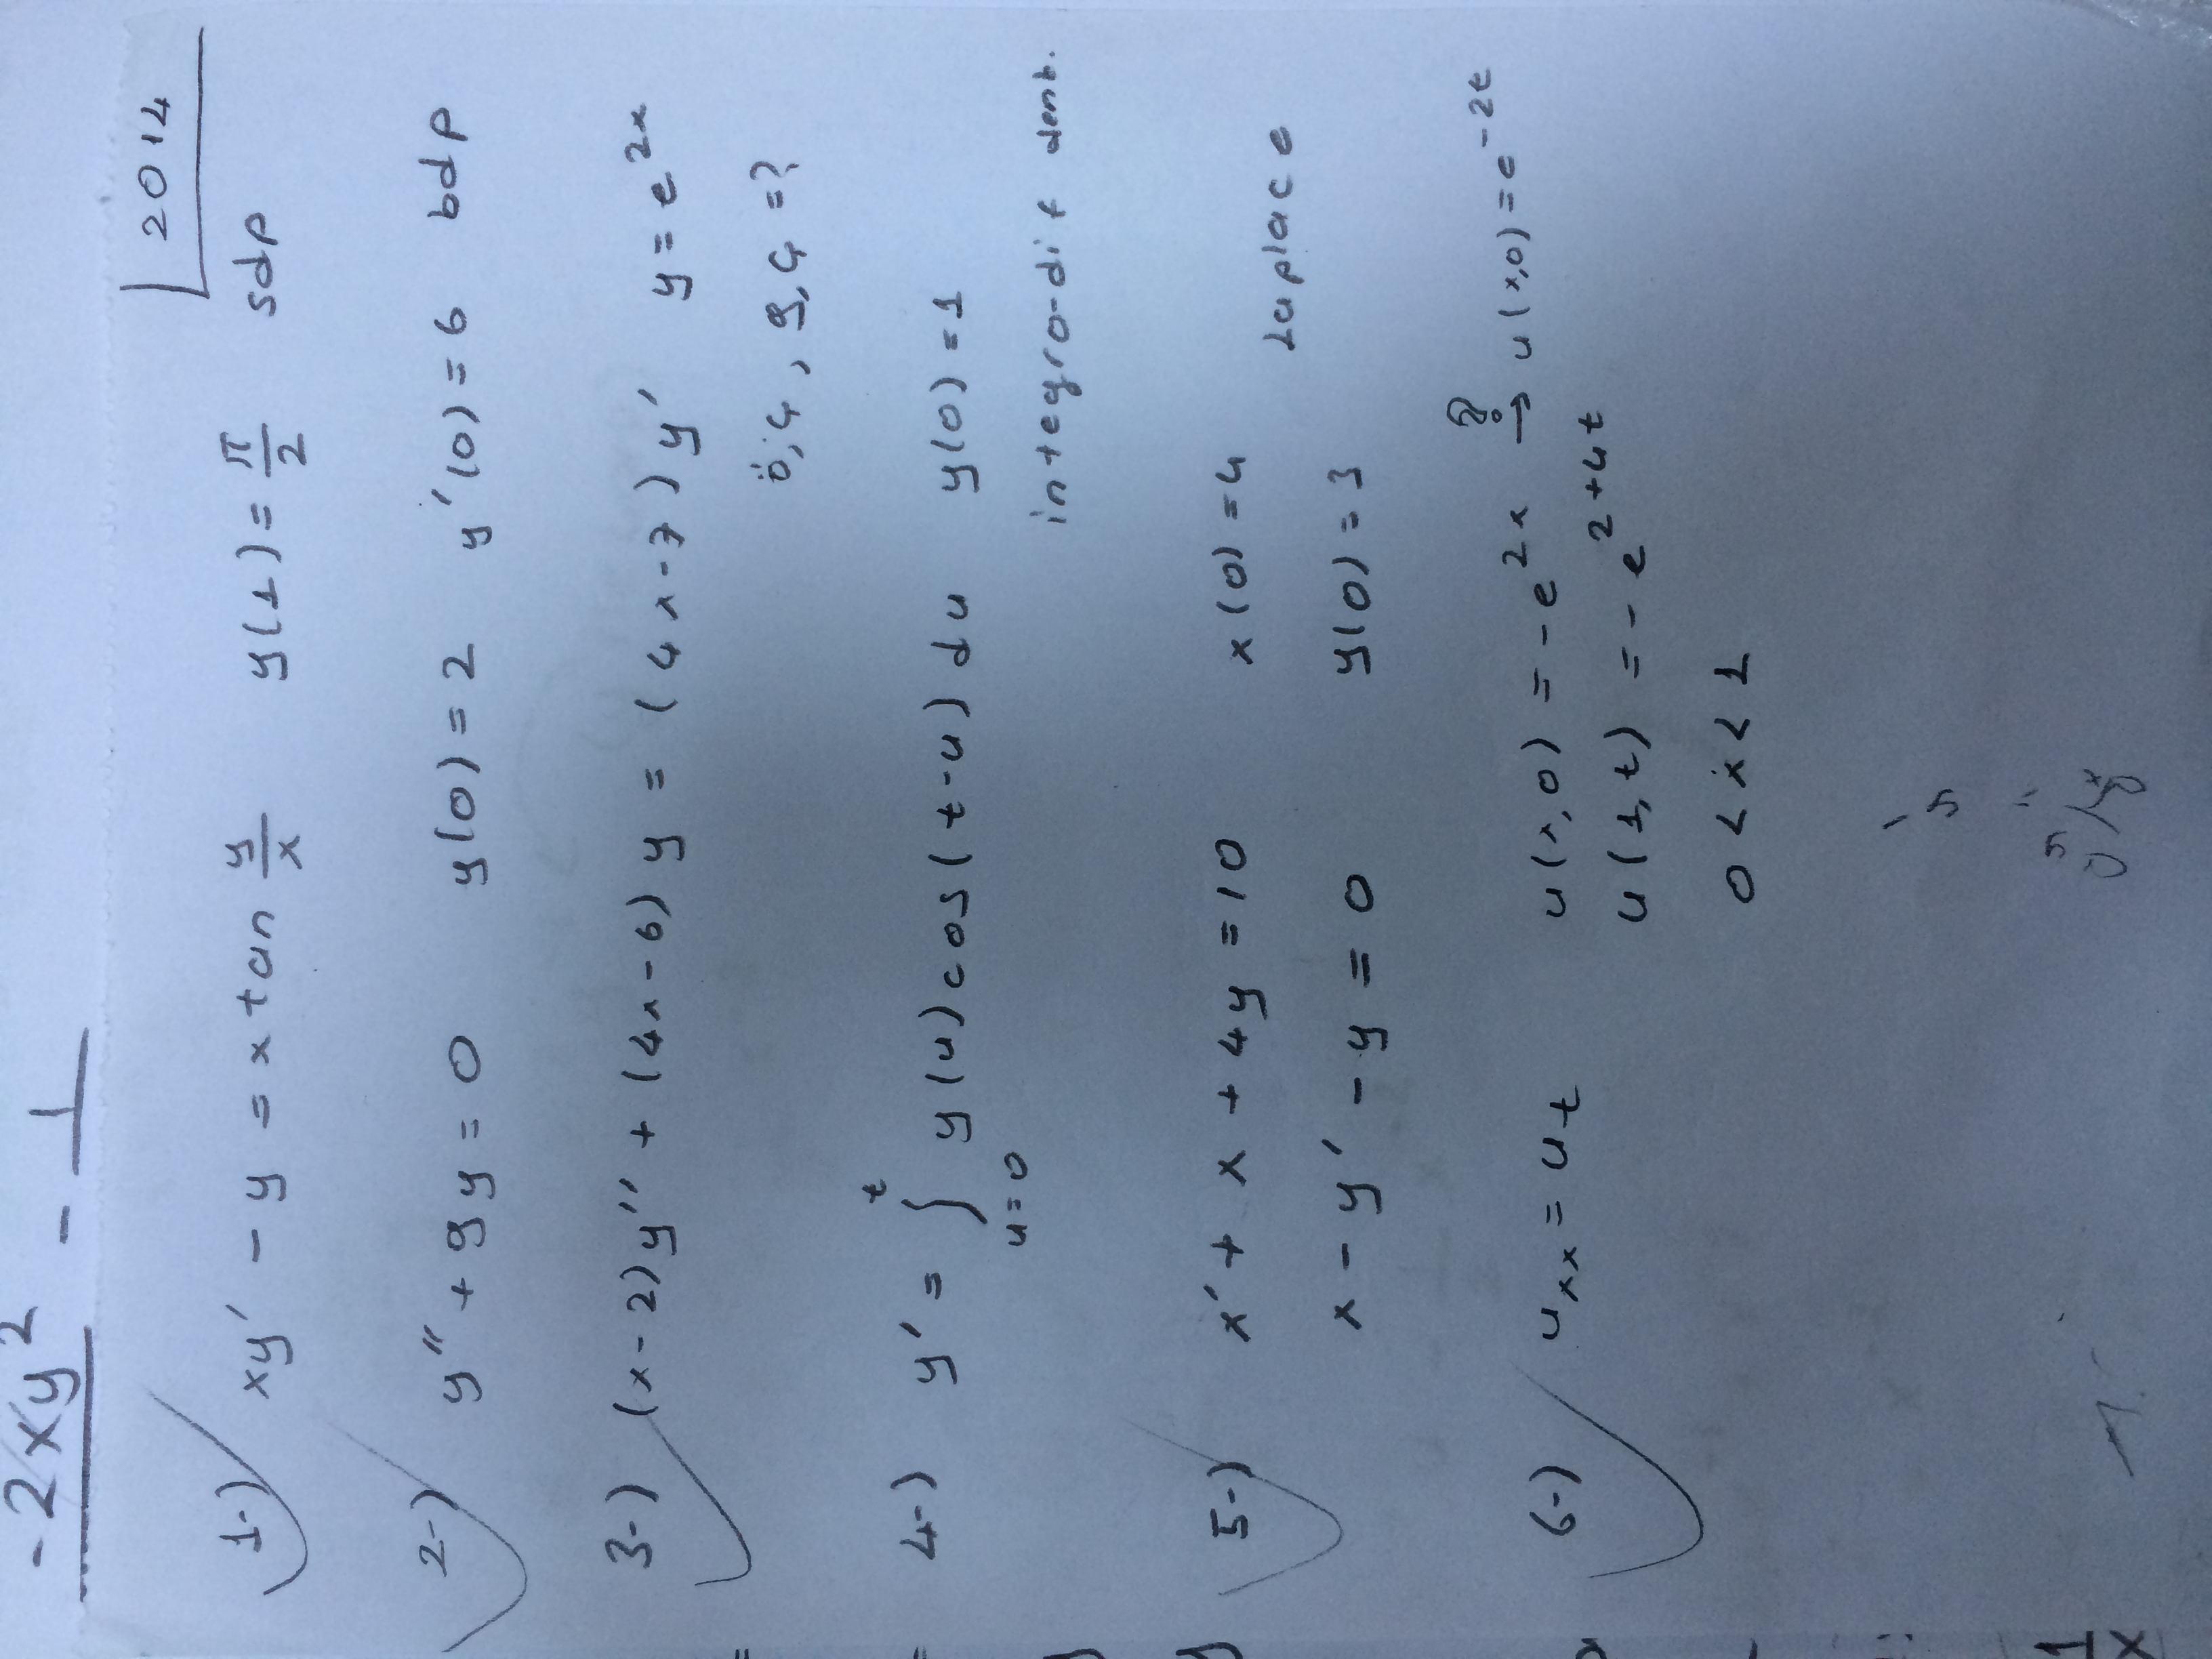 -2xy² - 1
2014
1-) xy' - y = x tan y/x y(1) = π/2 sdp
2-) y'' + 9y = 0 y(0) = 2 y'(0) = 6 bdp
3-) (x-2)y'' + (4x-6)y = (4x-7)y' y = e^2x
ö,ç, g,ç =?
4-) y' = ∫ t u=0 y(u)cos(t-u)du y(0) = 1
integro-dif denk.
5-) x' + x + 4y = 10 x(0) = 4
Laplace
x - y' - y = 0 y(0) = 3
6-) uxx = ut u(x,0) = -e^2x ? → u(x,0) = e^-2t
u(1,t) = -e^2+4t
0 < x < 1
1
x